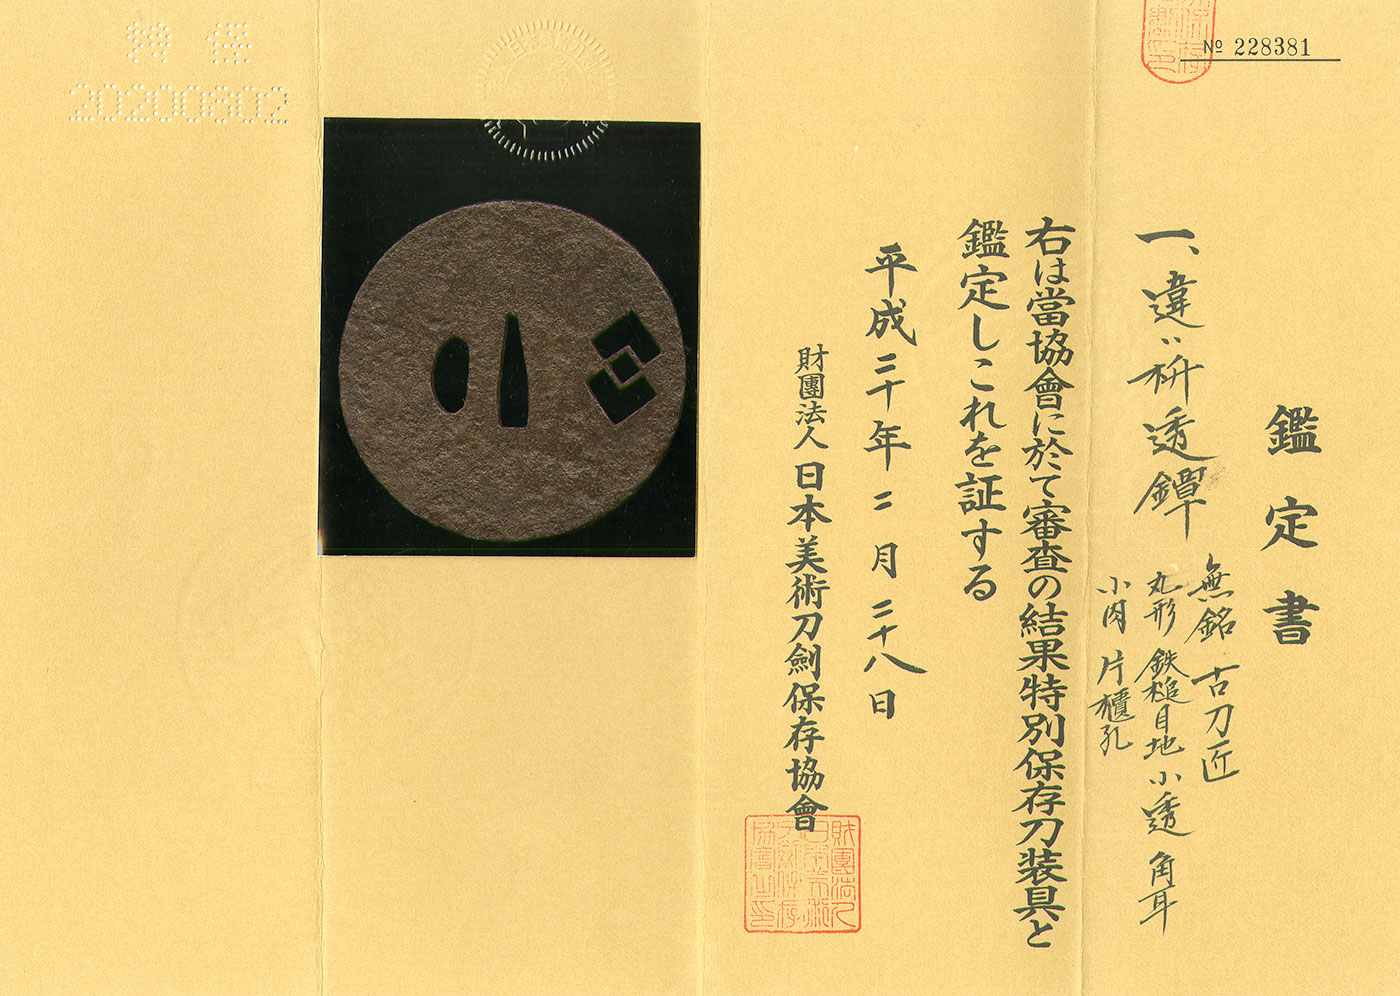 № 228381
鑑定書
一、違い枡透鐔
無銘 古刀匠
丸形 鉄槌目地 小透 角耳
小肉 片櫃孔
右は當協會に於て審査の結果特別保存刀装具と
鑑定しこれを証する
平成二十年二月二十八日
財團法人日本美術刀劍保存協會
特保
20200802